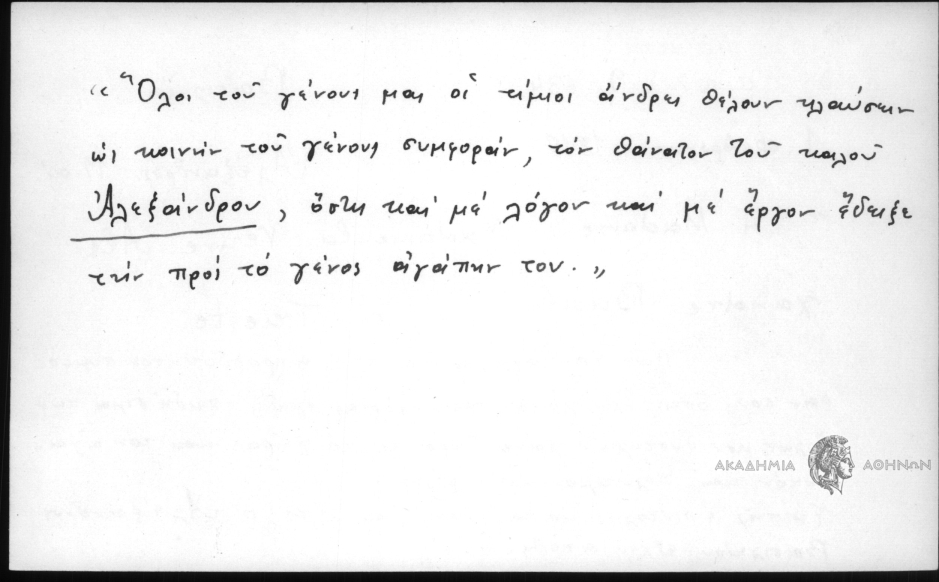 « Ὅλοι τοῦ γένους μας οἱ τίμιοι ἄνδρες θέλουν κλαύσειν
ὡς κοινὴν τοῦ γένους συμφοράν, τὸν θάνατον τοῦ καλοῦ
Ἀλεξάνδρου, ὅστις καὶ μὲ λόγον καὶ μὲ ἔργον ἔδειξε
τὴν πρὸς τὸ γένος ἀγάπην του. »
ΑΚΑΔΗΜΙΑ ΑΘΗΝΩΝ